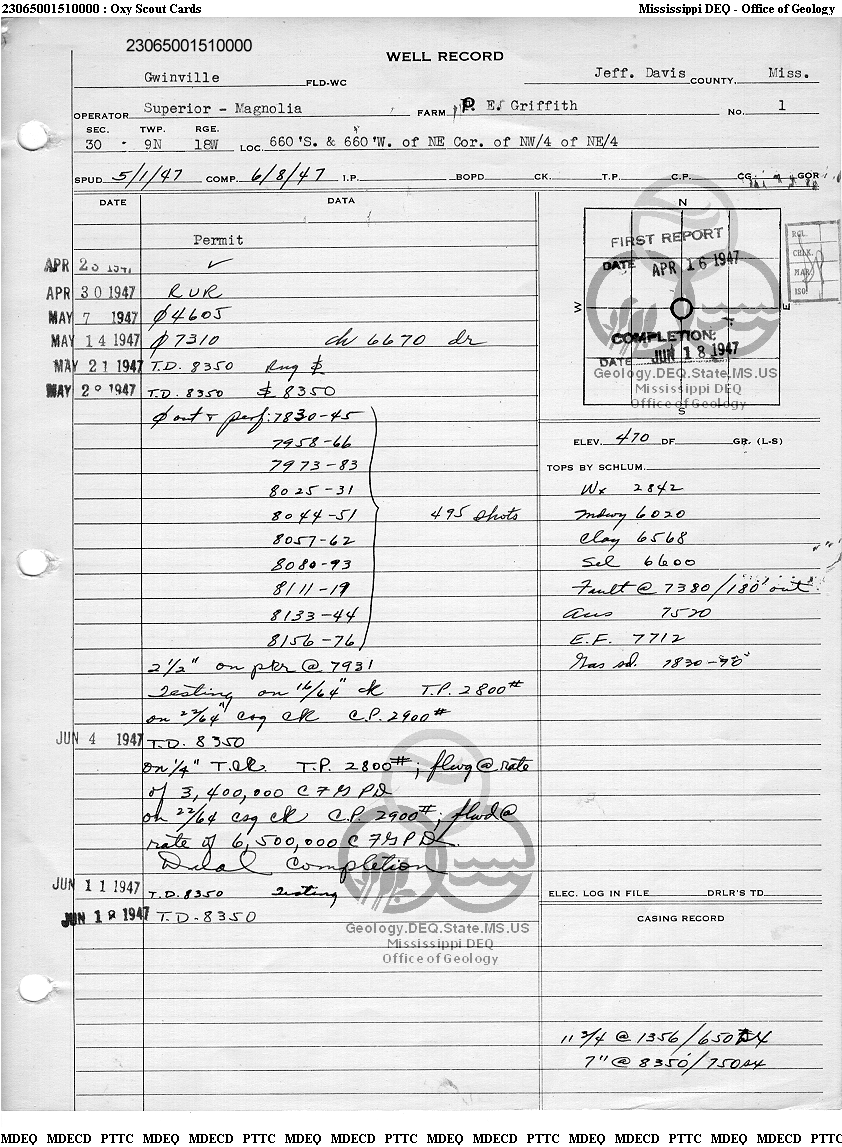 23065001510000 : Oxy Scout Cards Mississippi DEQ - Office of Geology
23065001510000
WELL RECORD
Gwinville FLD-WC Jeff. Davis COUNTY Miss.
OPERATOR Superior - Magnolia FARM P. E. Griffith No. 1
SEC. TWP. RGE.
30 - 9N 18W LOC. 660'S. & 660'W. of NE Cor. of NW/4 of NE/4
SPUD 5/1/47 COMP. 6/8/47 I.P. BOPD CK. T.P. C.P. CG GOR
DATE DATA
Permit
APR 23 1947 ✓
APR 30 1947 RUR
MAY 7 1947 ϕ4605
MAY 14 1947 ϕ7310 ch 6670 dr
MAY 21 1947 T.D. 8350 Rng $
MAY 28 1947 T.D. 8350 $ 8350
ϕ out & perf: 7830-45
7958-66
7973-83
8025-31
8044-51 495 shots
8057-62
8080-93
8111-19
8133-44
8156-76
2 1/2" on pkr @ 7931
Testing on 16/64" ck T.P. 2800#
on 22/64" csg ck C.P. 2900#
JUN 4 1947 T.D. 8350
on 1/4" T.Ck. T.P. 2800#; flwg @ rate
of 3,400,000 CFGPD
on 22/64 csg ck C.P. 2900#; flwd @
rate of 6,500,000 CFGPD.
Dual completion
JUN 11 1947 T.D. 8350 Testing
JUN 18 1947 T.D. - 8350
N
W
E
S
FIRST REPORT
DATE APR 16 1947
COMPLETION:
DATE JUN 18 1947
Geology.DEQ.State.MS.US
Mississippi DEQ
Office of Geology
RGL.
CHLK.
MAR.
ISO.
ELEV. 470 DF. GR. (L-S)
TOPS BY SCHLUM.
Wx 2842
Mdwy 6020
Clay 6568
Sel 6600
Fault @ 7380/180' out
Aus 7520
E.F. 7712
Gas sd. 7830-90'
ELEC. LOG IN FILE DRLR'S TD
CASING RECORD
11 3/4 @ 1356/650 sx
7" @ 8350/750 sx
Geology.DEQ.State.MS.US
Mississippi DEQ
Office of Geology
MDEQ MDECD PTTC MDEQ MDECD PTTC MDEQ MDECD PTTC MDEQ MDECD PTTC MDEQ MDECD PTTC MDEQ MDECD PTTC